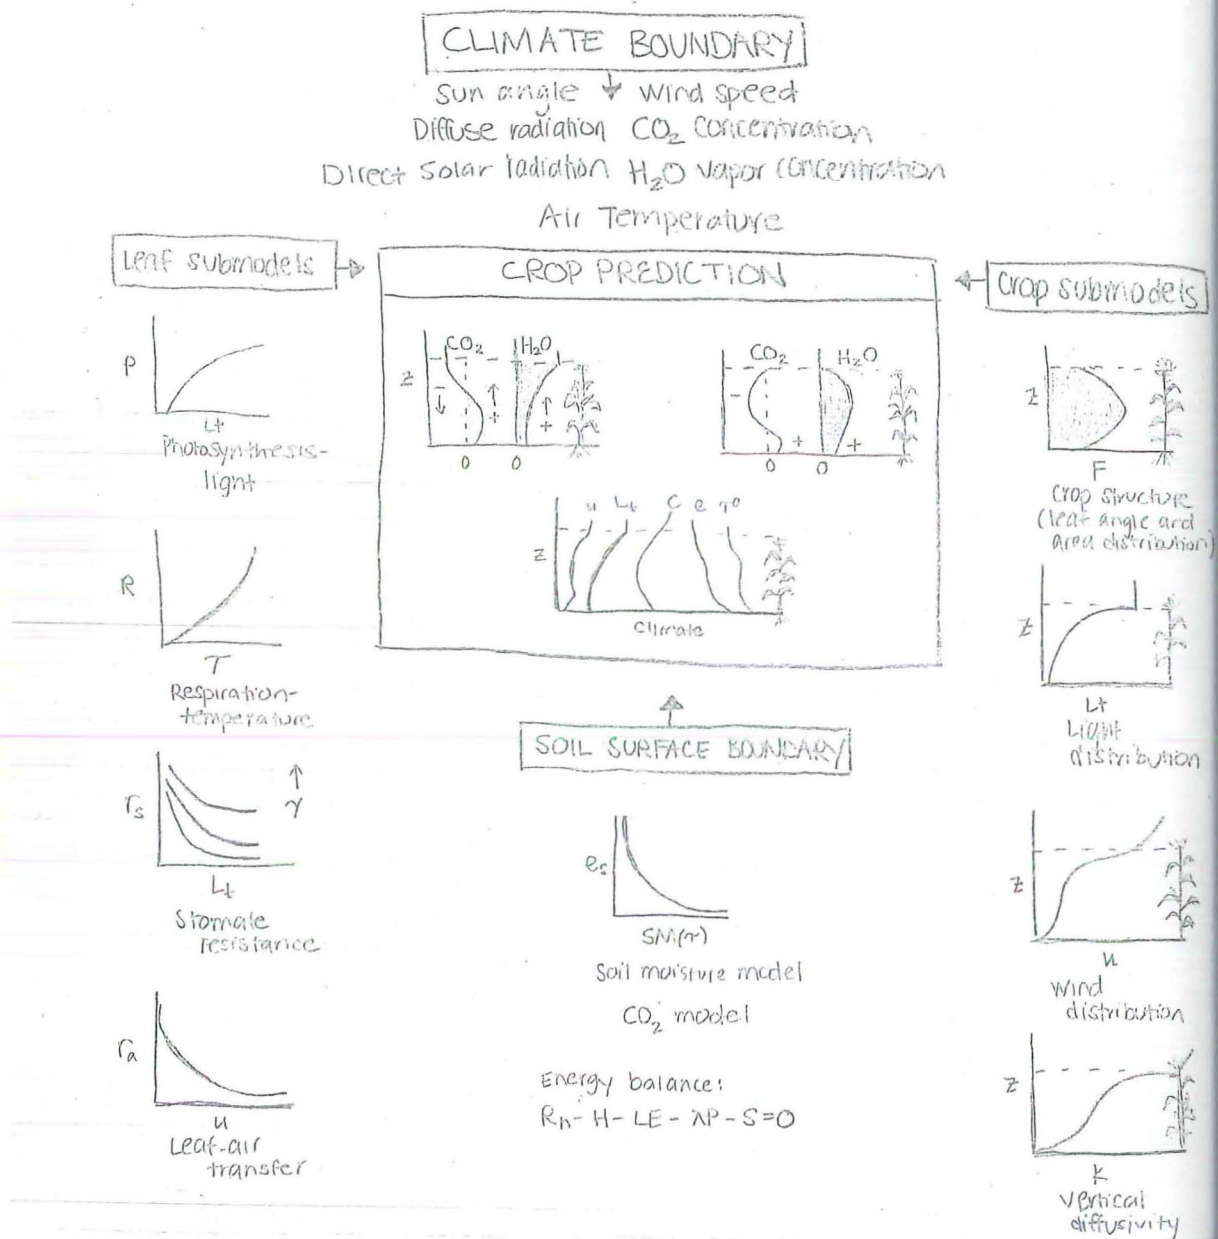 CLIMATE BOUNDARY
Sun angle Wind speed
Diffuse radiation CO₂ Concentration
Direct Solar radiation H₂O vapor concentration
Air Temperature
Leaf submodels
P
Lt
Photosynthesis-
light
R
T
Respiration-
temperature
rs
γ
Lt
Stomate
resistance
ra
u
Leaf-air
transfer
CROP PREDICTION
CO₂ H₂O
z
- + +
0 0
CO₂ H₂O
- + +
0 0
u Lt C e T
z
Climate
SOIL SURFACE BOUNDARY
es
SM(τ)
Soil moisture model
CO₂ model
Energy balance:
Rn- H- LE- λP- S=0
Crop submodels
z
F
Crop structure
(leaf angle and
area distribution)
z
Lt
Light
distribution
z
u
Wind
distribution
z
K
Vertical
diffusivity